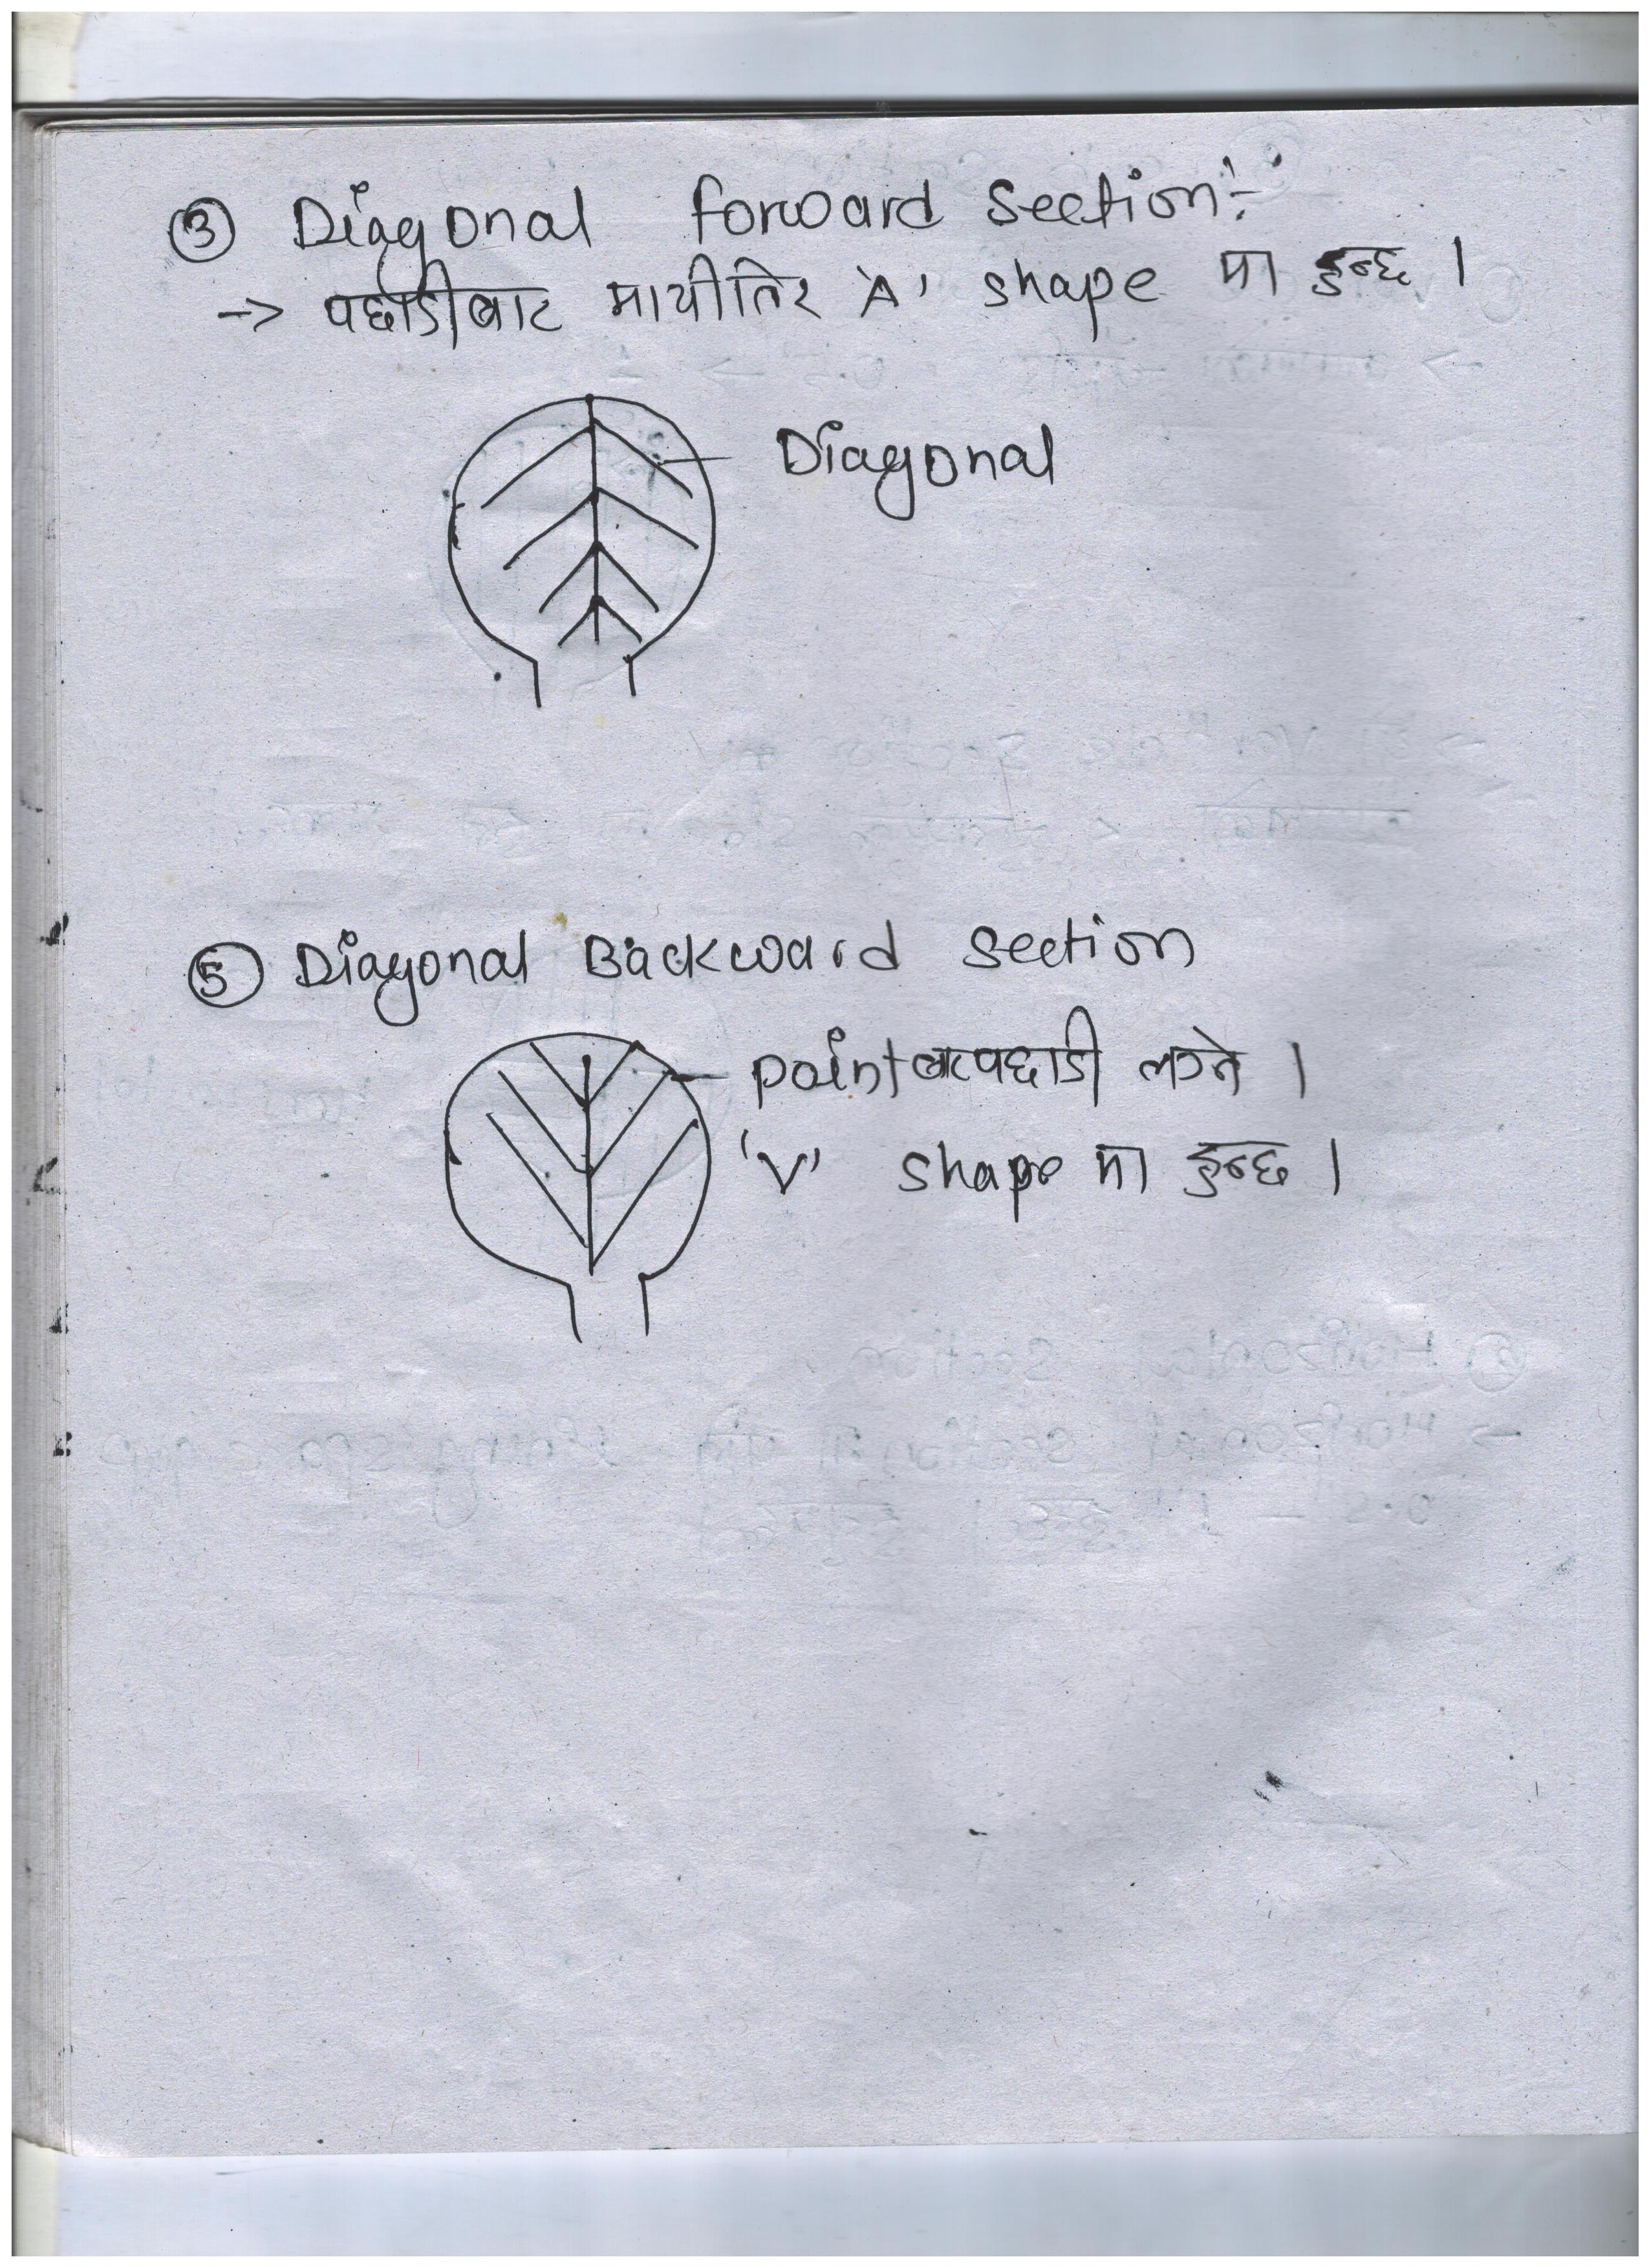 ③ Diagonal forward section:-
-> पछाडीबाट माथीतिर 'A' shape मा हुन्छ ।
Diagonal
⑤ Diagonal Backward section
point बाट पछाडी लाने ।
'V' shape मा हुन्छ ।